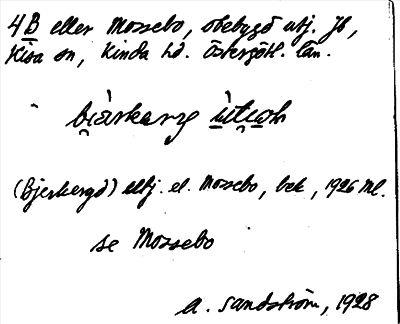 4 B eller Mossebo, obebygd utj. Jb,
Kisa sn, Kinda hd. Östergötl. län.
(Bjerkergd) utj. el. Mossebo, bek, 1926 Ml.
se Mossebo
A. Sandström, 1928